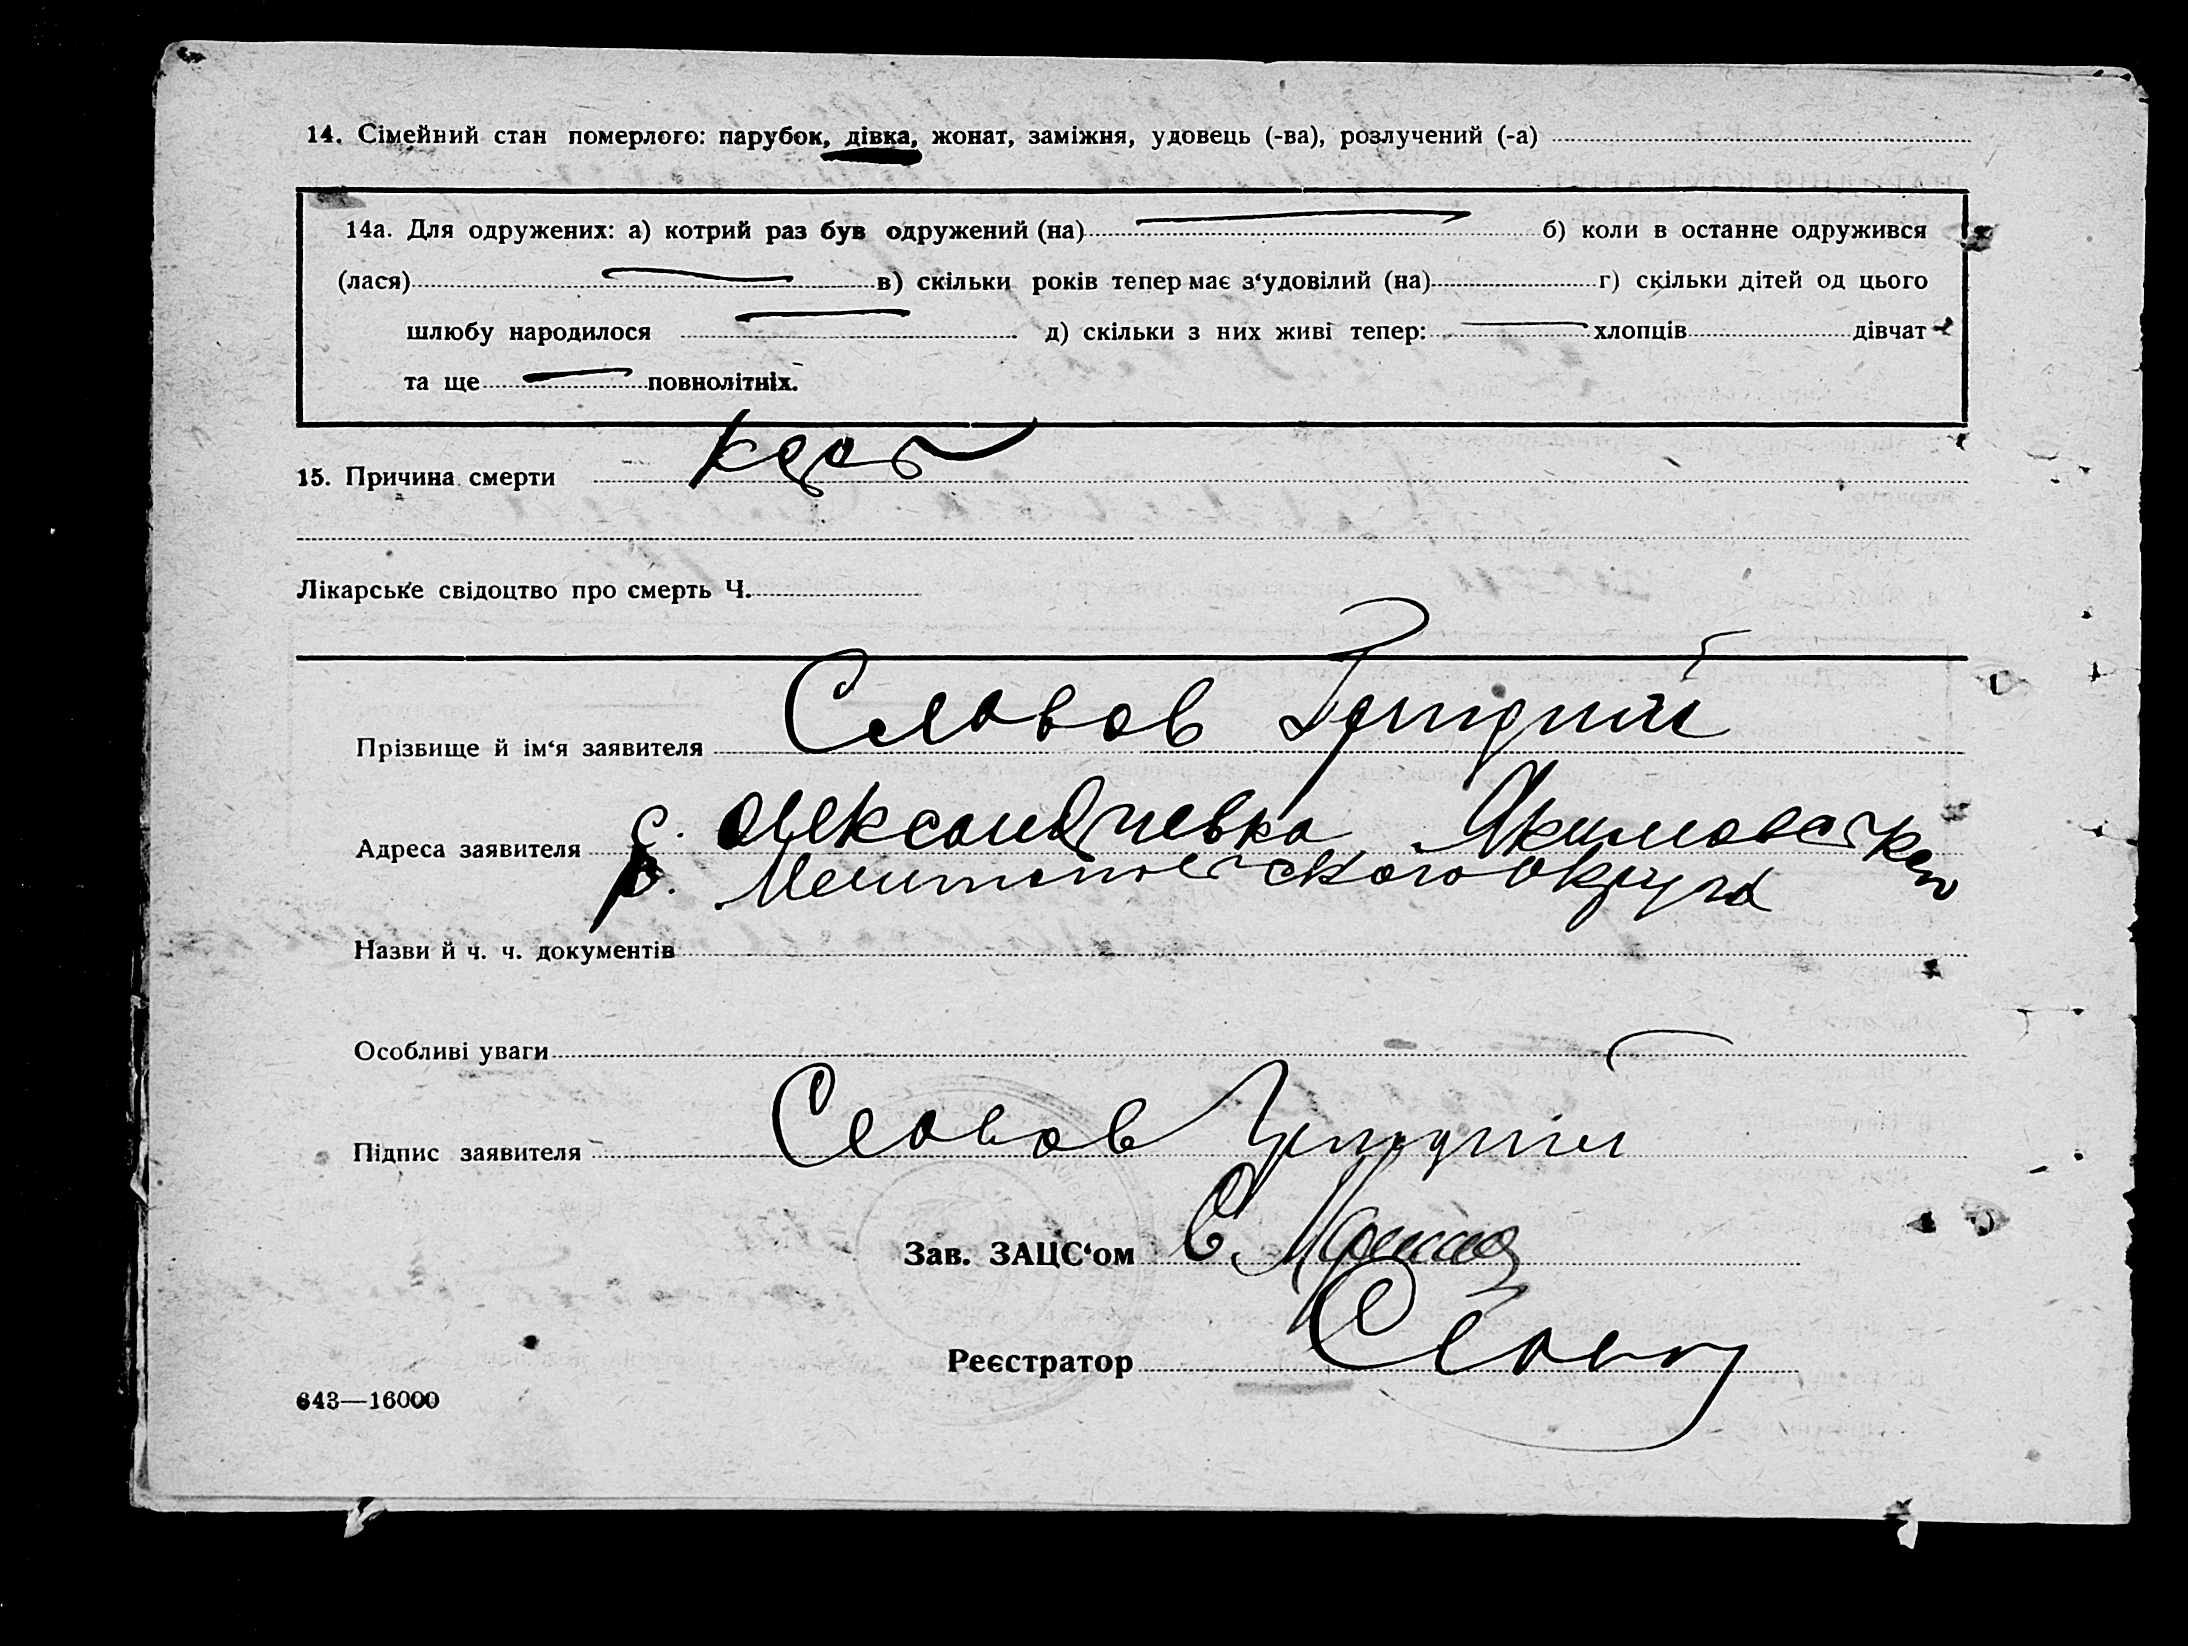 14. Сімейний стан померлого: парубок, дівка, жонат, заміжня, удовець (-ва), розлучений (-а)
14а. Для одружених: а) котрий раз був одружений (на) б) коли в останнє одружився
(лася) в) скільки років тепер має з‘удовілий (на) г) скільки дітей од цього
шлюбу народилося д) скільки з них живі тепер: хлопців дівчат
та ще повнолітніх.
15. Причина смерти
Лікарське свідоцтво про смерть Ч.
Прізвище й ім‘я заявителя Словов
Адреса заявителя с. Олександровка Якимовського
р. Мелитопольского округа
Назви й ч. ч. документів
Особливі уваги
Підпис заявителя Словов
Зав. ЗАЦС‘ом
Реєстратор
643—16000